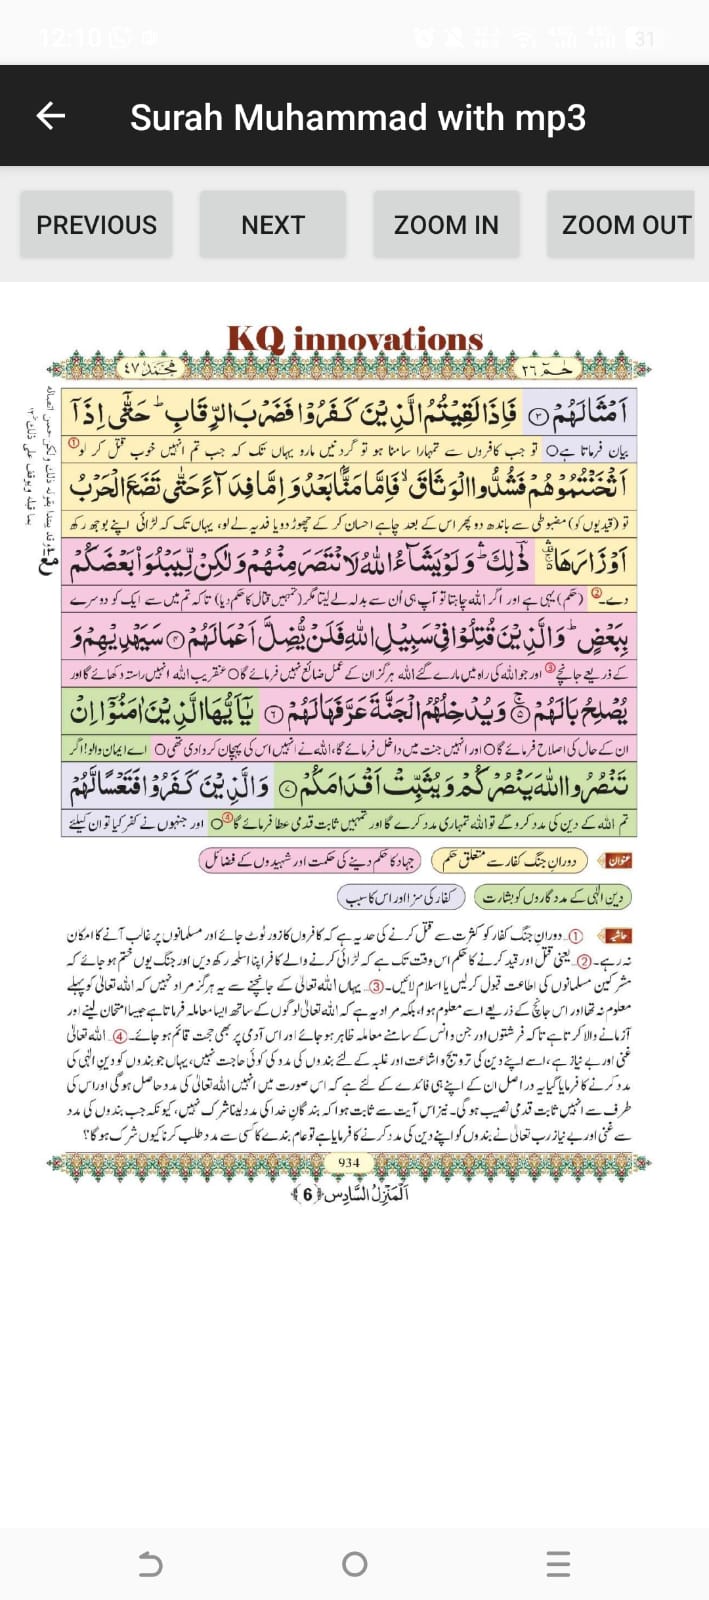 12:10
31
Surah Muhammad with mp3
PREVIOUS NEXT ZOOM IN ZOOM OUT
KQ innovations
حٰمٓ ٢٦
مُحَمَّد ٤٧
اَمْثَالَهُمْ ﴿۳﴾ فَاِذَا لَقِیْتُمُ الَّذِیْنَ كَفَرُوْا فَضَرْبَ الرِّقَابِ ؕ حَتّٰۤی اِذَاۤ
بیان فرماتا ہے○ تو جب کافروں سے تمہارا سامنا ہو تو گردنیں مارو یہاں تک کہ جب تم انہیں خوب قتل کر لو①
اَثْخَنْتُمُوْهُمْ فَشُدُّوا الْوَثَاقَ ۙ فَاِمَّا مَنًّۢا بَعْدُ وَ اِمَّا فِدَآءً حَتّٰی تَضَعَ الْحَرْبُ
تو (قیدیوں کو) مضبوطی سے باندھ دو پھر اس کے بعد چاہے احسان کر کے چھوڑ دو یا فدیہ لے لو، یہاں تک کہ لڑائی اپنے بوجھ رکھ
اَوْزَارَهَا ۛ۫ ذٰلِكَ ۛؕ وَ لَوْ یَشَآءُ اللّٰهُ لَانْتَصَرَ مِنْهُمْ وَ لٰكِنْ لِّیَبْلُوَاۡ بَعْضَكُمْ
دے۔② (حکم) یہی ہے اور اگر اللہ چاہتا تو آپ ہی اُن سے بدلہ لے لیتا مگر (تمہیں قتال کا حکم دیا) تاکہ تم میں سے ایک کو دوسرے
بِبَعْضٍ ؕ وَ الَّذِیْنَ قُتِلُوْا فِیْ سَبِیْلِ اللّٰهِ فَلَنْ یُّضِلَّ اَعْمَالَهُمْ ﴿۴﴾ سَیَهْدِیْهِمْ وَ
کے ذریعے جانچے③ اور جو اللہ کی راہ میں مارے گئے اللہ ہرگز ان کے عمل ضائع نہیں فرمائے گا○ عنقریب اللہ انہیں راستہ دکھائے گا اور
یُصْلِحُ بَالَهُمْ ۚ﴿۵﴾ وَ یُدْخِلُهُمُ الْجَنَّةَ عَرَّفَهَا لَهُمْ ﴿۶﴾ یٰۤاَیُّهَا الَّذِیْنَ اٰمَنُوْۤا اِنْ
ان کے حال کی اصلاح فرمائے گا○ اور انہیں جنت میں داخل فرمائے گا، اللہ نے انہیں اس کی پہچان کروا دی تھی○ اے ایمان والو! اگر
تَنْصُرُوا اللّٰهَ یَنْصُرْكُمْ وَ یُثَبِّتْ اَقْدَامَكُمْ ﴿۷﴾ وَ الَّذِیْنَ كَفَرُوْا فَتَعْسًا لَّهُمْ
تم اللہ کے دین کی مدد کرو گے تو اللہ تمہاری مدد کرے گا اور تمہیں ثابت قدمی عطا فرمائے گا④○ اور جنہوں نے کفر کیا تو ان کیلئے
عنوان دورانِ جنگ کفار سے متعلق حکم جہاد کا حکم دینے کی حکمت اور شہیدوں کے فضائل
دین الٰہی کے مددگاروں کو بشارت کفار کی سزا اور اس کا سبب
حاشیہ ①۔ دورانِ جنگ کفار کو کثرت سے قتل کرنے کی حد یہ ہے کہ کافروں کا زور ٹوٹ جائے اور مسلمانوں پر غالب آنے کا امکان
نہ رہے۔ ②۔ یعنی قتل اور قید کرنے کا حکم اس وقت تک ہے کہ لڑائی کرنے والے کافر اپنا اسلحہ رکھ دیں اور جنگ یوں ختم ہو جائے کہ
مشرکین مسلمانوں کی اطاعت قبول کر لیں یا اسلام لائیں۔ ③۔ یہاں اللہ تعالیٰ کے جانچنے سے یہ ہرگز مراد نہیں کہ اللہ تعالیٰ کو پہلے
معلوم نہ تھا اور اس جانچ کے ذریعے اسے معلوم ہوا، بلکہ مراد یہ ہے کہ اللہ تعالیٰ لوگوں کے ساتھ ایسا معاملہ فرماتا ہے جیسا امتحان لینے اور
آزمانے والا کرتا ہے تاکہ فرشتوں اور جن و انس کے سامنے معاملہ ظاہر ہو جائے اور اس آدمی پر بھی حجت قائم ہو جائے۔ ④۔ اللہ تعالیٰ
غنی اور بے نیاز ہے، اسے اپنے دین کی ترویج و اشاعت اور غلبہ کے لئے بندوں کی مدد کی کوئی حاجت نہیں، یہاں جو بندوں کو دینِ الٰہی کی
مدد کرنے کا فرمایا گیا یہ دراصل ان کے اپنے ہی فائدے کے لئے ہے کہ اس صورت میں انہیں اللہ تعالیٰ کی مدد حاصل ہو گی اور اس کی
طرف سے انہیں ثابت قدمی نصیب ہو گی۔ نیز اس آیت سے ثابت ہوا کہ بندگانِ خدا کی مدد لینا شرک نہیں، کیونکہ جب بندوں کی مدد
سے غنی اور بے نیاز رب تعالیٰ نے بندوں کو اپنے دین کی مدد کرنے کا فرمایا ہے تو عام بندے کا کسی سے مدد طلب کرنا کیوں شرک ہو گا؟
934
اَلْمَنْزِلُ السَّادِس ﴿6﴾